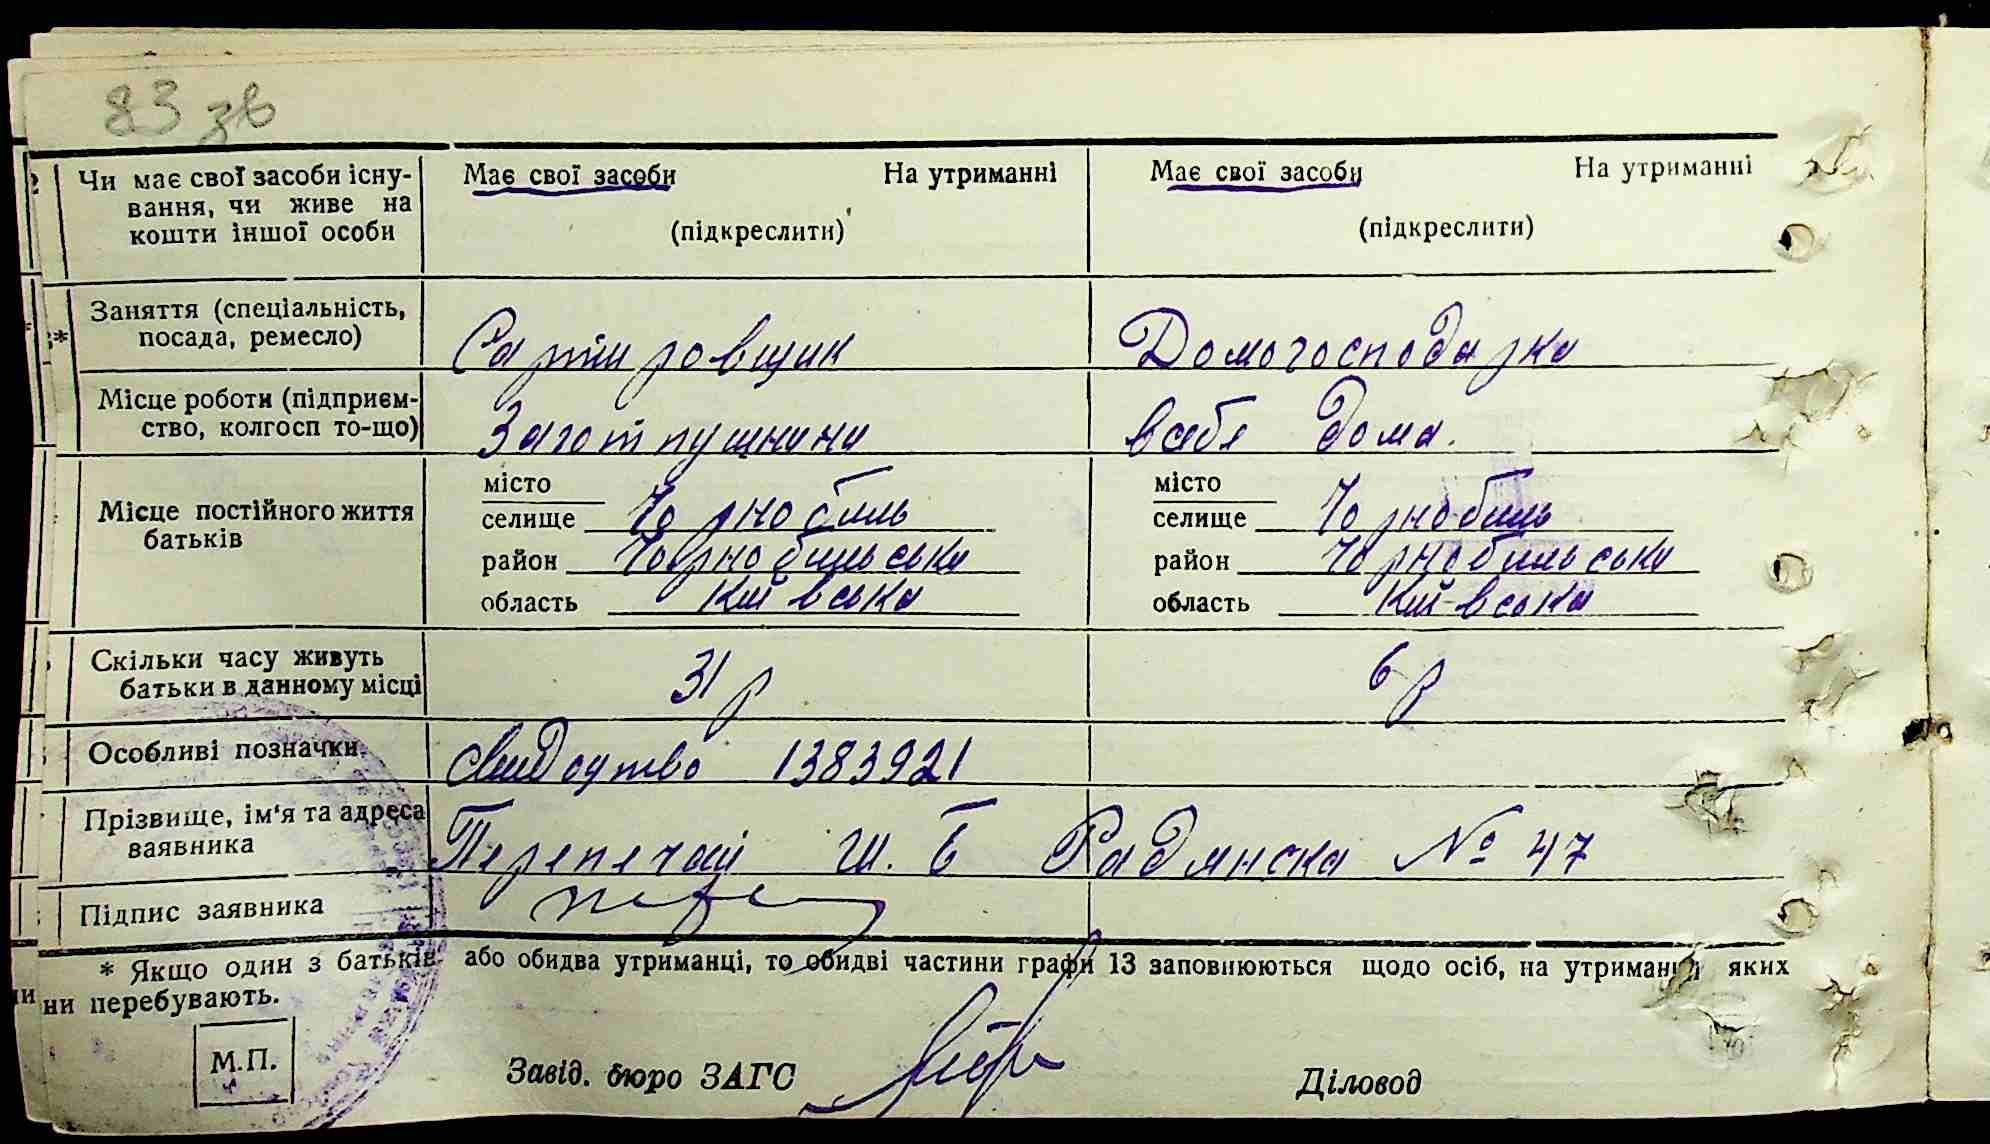 83 зв
Чи має свої засоби існу- Має свої засоби На утриманні Має свої засоби На утриманні
вання, чи живе на
кошти іншої особи (підкреслити) (підкреслити)
Заняття (спеціальність,
посада, ремесло) Сартировщик Домогосподарка
Місце роботи (підприєм-
ство, колгосп то-що) Заготпушнини всебе дома.
місто місто
Місце постійного життя селище Чорнобиль селище Чорнобиль
батьків район Чорнобильськи район Чорнобильськи
область Київська область Київська
Скільки часу живуть
батьки в данному місці 31 р 6 р
Особливі позначки свидоцтво 1383921
Прізвище, ім'я та адреса
заявника Перепечай Ш. Б Радянска № 47
Підпис заявника
* Якщо один з батьків або обидва утриманці, то обидві частини графи 13 заповнюються щодо осіб, на утриманні яких
ни перебувають.
М.П. Завід. бюро ЗАГС Діловод